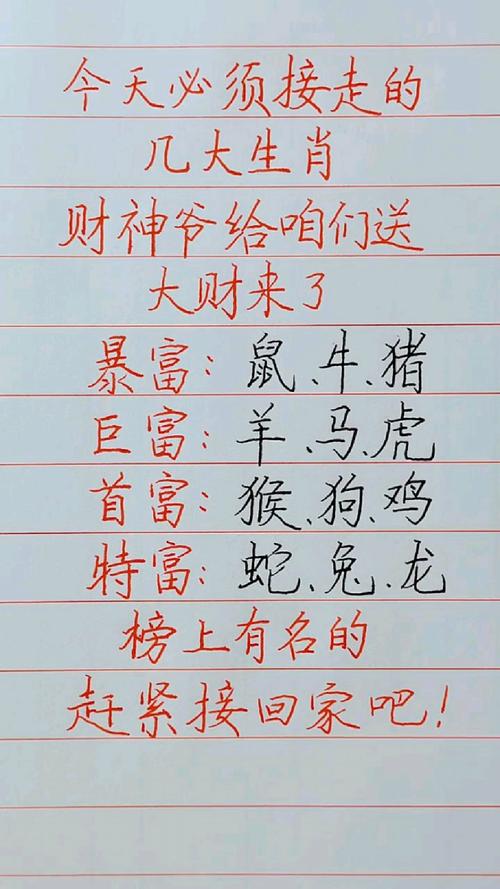 今天必须接走的
几大生肖
财神爷给咱们送
大财来了
暴富：鼠、牛、猪
巨富：羊、马、虎
首富：猴、狗、鸡
特富：蛇、兔、龙
榜上有名的
赶紧接回家吧！